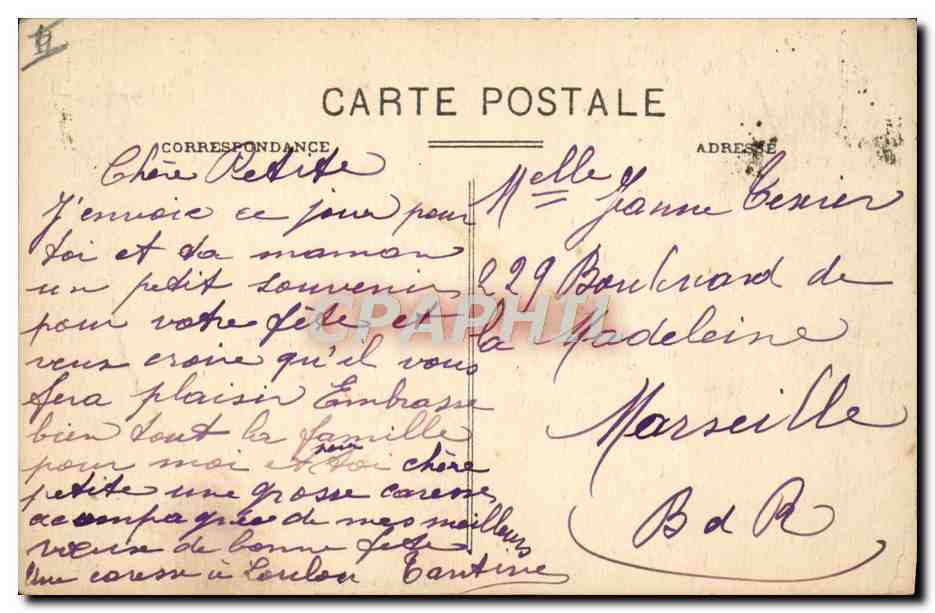 CARTE POSTALE
CORRESPONDANCE
ADRESSE
Chère Petite
J'envoie ce jour pour
toi et ta maman
un petit souvenir
pour votre fête et
veux croire qu'il vous
fera plaisir Embrasse
bien tout la famille
pour moi et pour toi chère
petite une grosse caresse
acompagnée de mes meilleurs
vœux de bonne fete
Une caresse à Loulou Tantine
Melle Jeanne Texier
229 Boulevard de
la Madeleine
Marseille
B d R
CPAPHIL